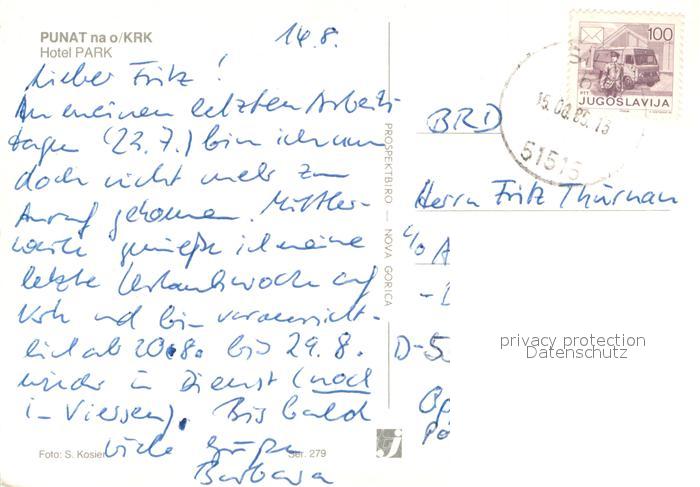 PUNAT na o/KRK
Hotel PARK
14.8.
Lieber Fritz!
An meinen letzten Arbeits-
tagen (22.7.) bin ich nun
doch nicht mehr zum
Anruf gekommen. Mittler-
weile genieße ich meine
letzte Urlaubswoche auf
Krk und bin voraussicht-
lich ab 20.8. bis 29.8.
wieder im Dienst (noch
in Viersen). Bis bald
viele Grüße
Barbara
Foto: S. Kosier
Ser. 279
PROSPEKTBIRO — NOVA GORICA
100
PTT
JUGOSLAVIJA
51515
BRD
Herrn Fritz Thürnau
c/o A
D-5
privacy protection
Datenschutz